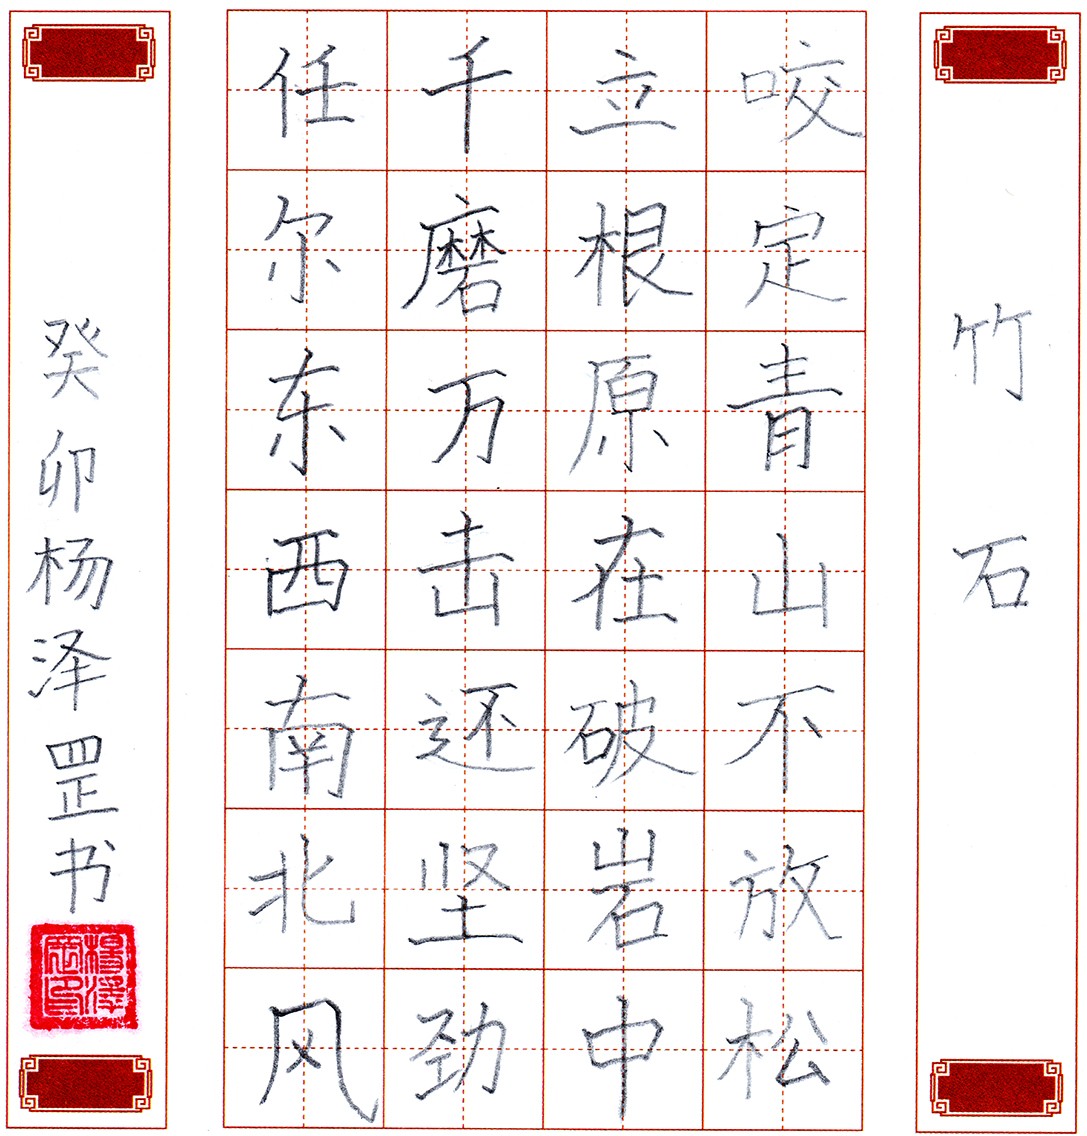 竹石
咬定青山不放松
立根原在破岩中
千磨万击还坚劲
任尔东西南北风
癸卯杨泽罡书
杨泽罡印